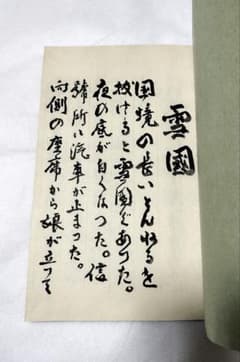 雪國
国境の長いとんねるを
抜けると雪国であつた。
夜の底が白くなつた。信
號所に汽車が止まつた。
向側の座席から娘が立つて